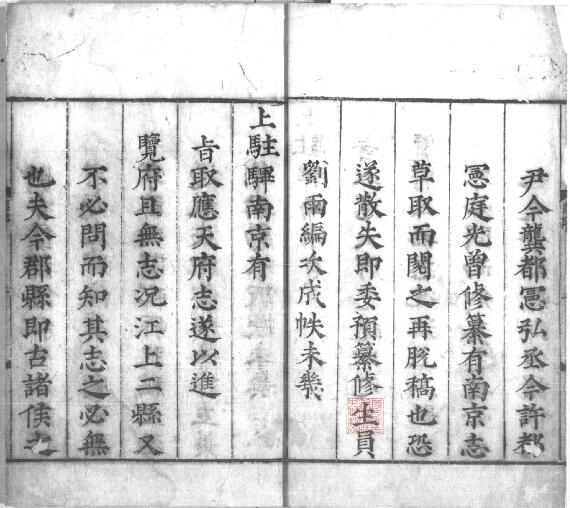 尹今龔都憲弘丞今許都
憲庭光曾修纂有南京志
草取而閱之再脫稿也恐
遂散失即委預纂修生員
劉雨編次成帙未幾
上駐驆南京有
旨取應天府志遂以進
覽府且無志况江上二縣又
不必問而知其志之必無
也夫今郡縣即古諸侯之